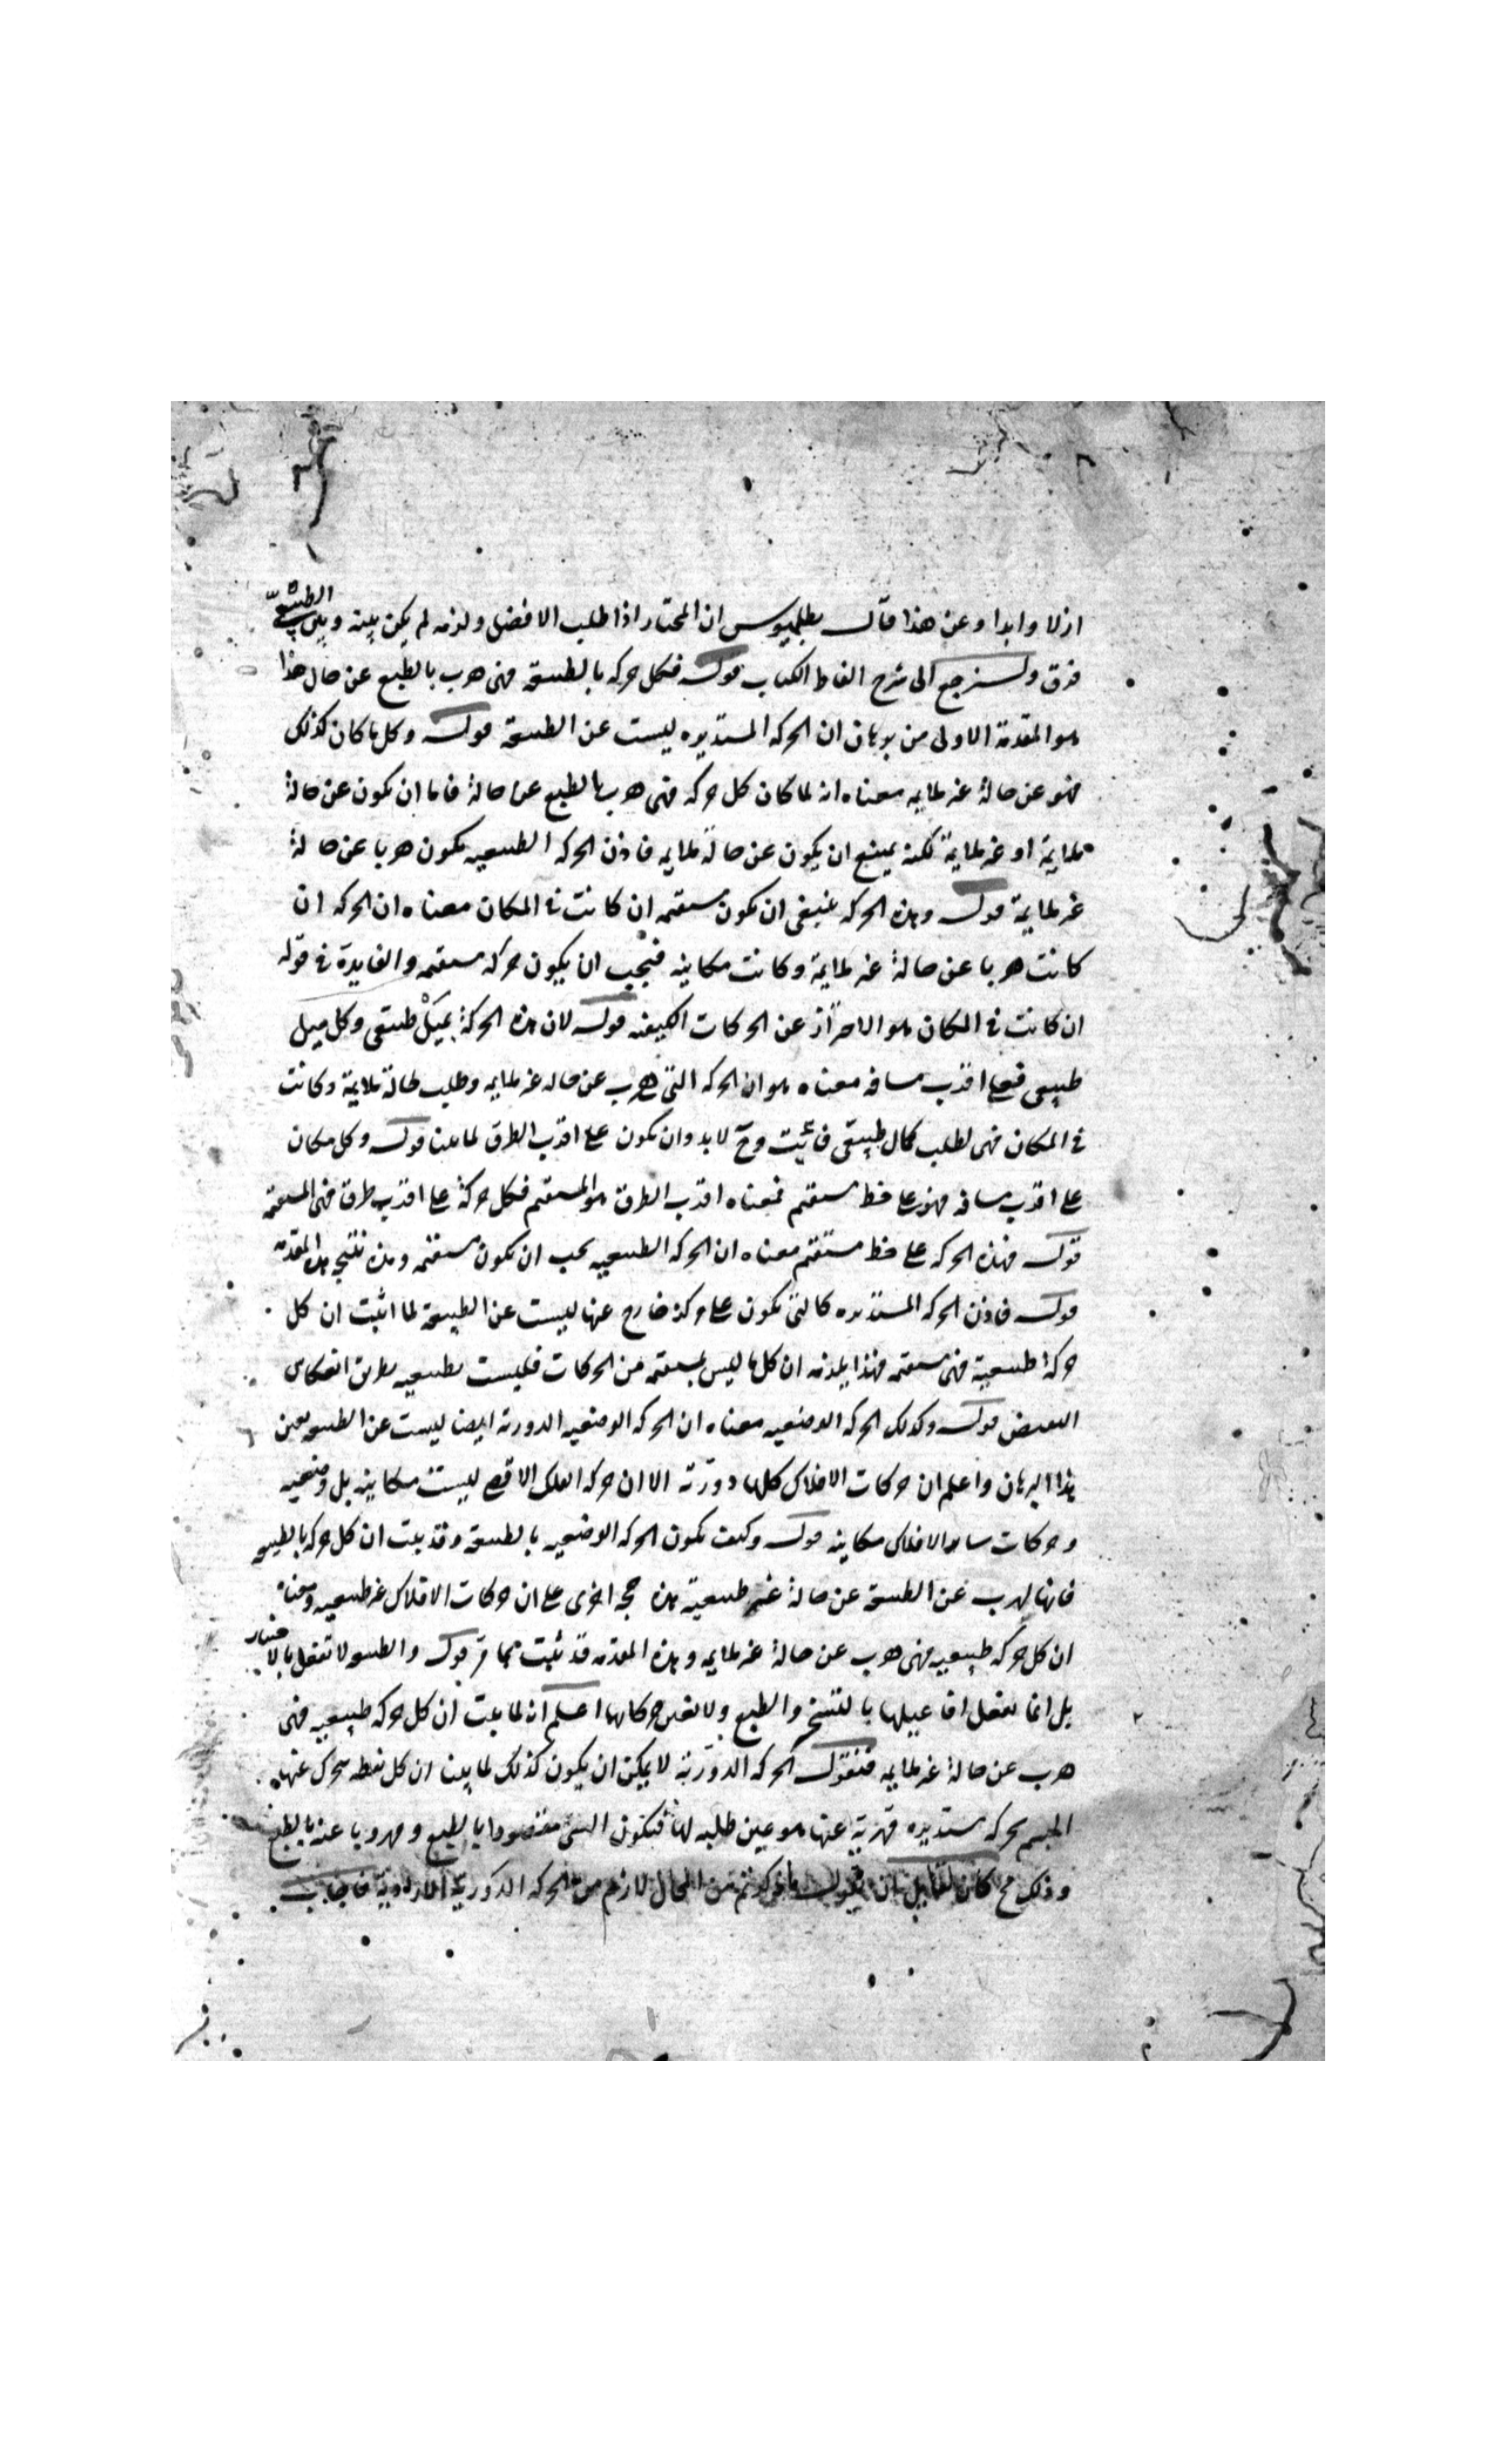 ازلا وابدا وعن هذا قال بطلميوس ان المختار اذا طلب الافضل ولزمه لم يكن بينه وبين الطبيعى
فرق ولنرجع الى شرح الفاظ الكتاب قوله فكل حركه بالطبيعة فهى هرب بالطبع عن حال هذا
هو المقدمة الاولى من برهان ان الحركه المستديره ليست عن الطبيعة قوله وكل ما كان كذلك
فهو عن حالة غير ملايمه معناه انه لما كان كل حركه فهى هرب بالطبع عن حالة فاما ان يكون عن حالة
ملايمة او غير ملايمة لكنه يمتنع ان يكون عن حالة ملايمه فاذن الحركه الطبيعيه يكون هربا عن حالة
غير ملايمة قوله وهذه الحركه ينبغى ان يكون مستقيمه ان كانت فى المكان معناه ان الحركه ان
كانت هربا عن حالة غير ملايمة وكانت مكانيه فيجب ان يكون حركه مستقيمه والفايدة فى قوله
ان كانت فى المكان هو الاحتراز عن الحركات الكيفيه قوله لان هذه الحركة بميل طبيعى وكل ميل
طبيعى فعلى اقرب مسافه معناه هو ان الحركه التى هرب عن حاله غير ملايمه وطلب لحالة ملايمة وكانت
فى المكان فهى لطلب كمال طبيعى فائت وح لا بد وان يكون على اقرب الطرق لما بينا قوله وكل مكان
على اقرب مسافه فهو على خط مستقيم فمعناه اقرب الطرق هو المستقيم فكل حركة على اقرب طرق فهى المستقيمه
قوله فهذه الحركه على خط مستقيم معناه ان الحركه الطبيعيه يجب ان يكون مستقيمه وهذه نتيجه هذه المقدمة
قوله فاذن الحركه المستديره كالتى يكون على مركز خارج عنها ليست عن الطبيعة لما اثبت ان كل
حركة طبيعية فهى مستقيمه فهذا يلزمه ان كل ما ليس بمستقيمه من الحركات فليست بطبيعيه بطريق انعكاس
النقيض قوله وكذلك الحركه الوضعيه معناه ان الحركه الوضعيه الدورية ايضا ليست عن الطبيعه بعين
هذا البرهان واعلم ان حركات الافلاك كلها دورية الا ان حركه الفلك الاقصى ليست مكانيه بل وضعيه
وحركات ساير الافلاك مكانيه قوله وكيف يكون الحركه الوضعيه بالطبيعة وقد بينت ان كل حركه بالطبيعه
فانها لهرب عن الطبيعة عن حالة غير طبيعية هذه حجه اخرى على ان حركات الافلاك غير طبيعيه ومعناه
ان كل حركه طبيعيه فهى هرب عن حالة غير ملايمه وهذه المقدمه قد ثبت بما مر قوله والطبيعه لا تفعل بالاختيار
بل انما تفعل افاعيلها بالتسخير والطبع ولا تفنن حركاتها اعلم انه لما بينت ان كل حركه طبيعيه فهى
هرب عن حالة غير ملايمه فنقول الحركه الدورية لا يمكن ان يكون كذلك لما بينت ان كل نقطه يتحرك عنها
الجسم بحركه مستديره فهربه عنها هو عين طلبه لها فيكون الشى مقصودا بالطبع ومهروبا عنه بالطبع
وذلك مح كان لقايل ان يقول ما ذكرتم من المحال لازم من الحركه الدورية الارادية فاجاب